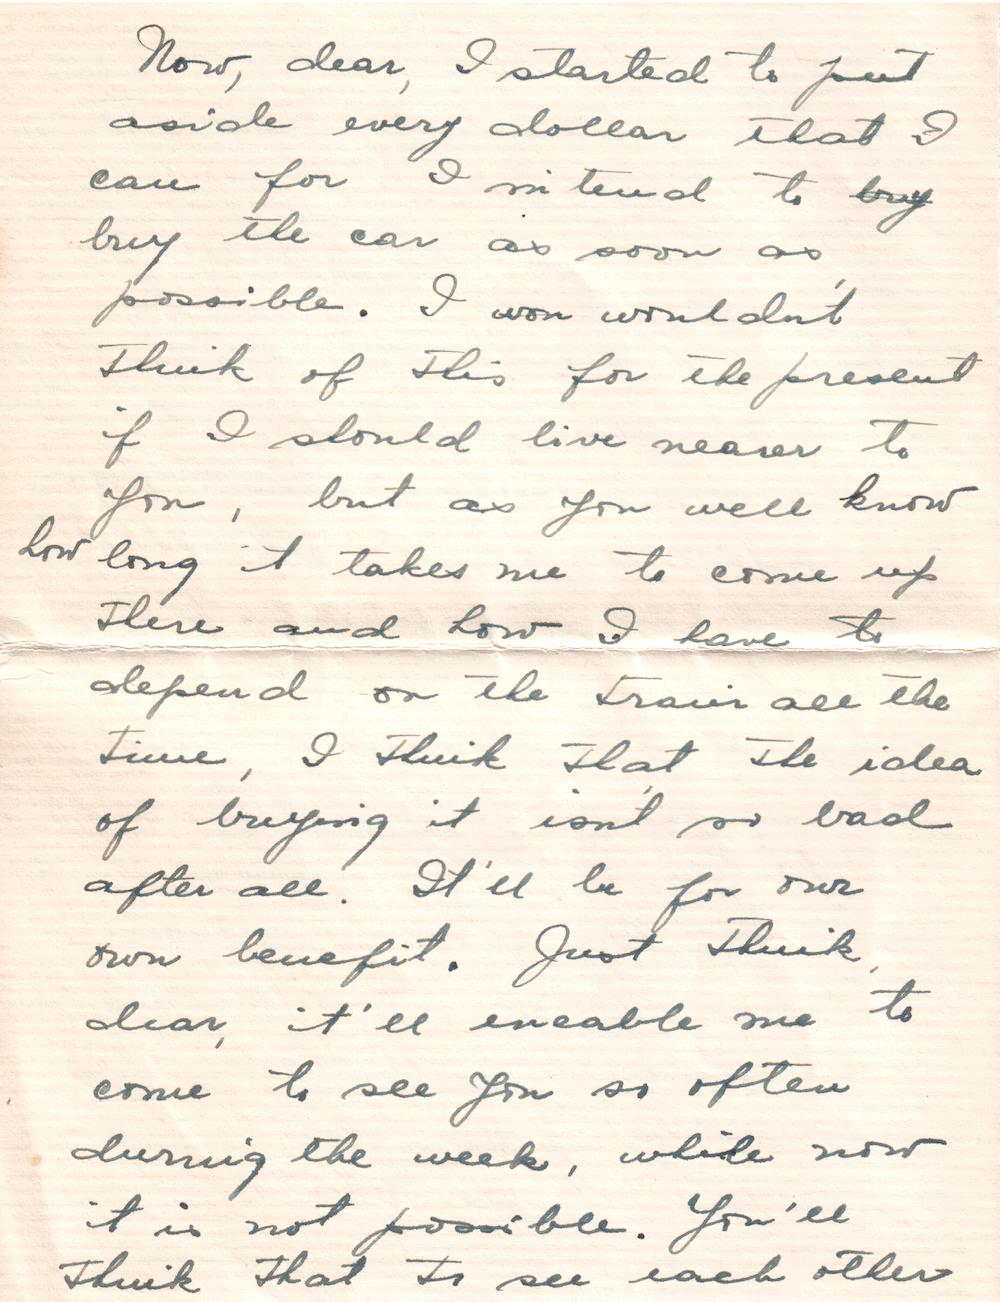 Now, dear, I started to put
aside every dollar that I
can for I intend to buy
buy the car as soon as
possible. I won wouldn't
think of this for the present
if I should live nearer to
you, but as you well know
how long it takes me to come up
there and how I have to
depend on the train all the
time, I think that the idea
of buying it isn't so bad
after all. It'll be for our
own benefit. Just think,
dear, it'll eneable me to
come to see you so often
during the week, while now
it is not possible. You'll
think that to see each other